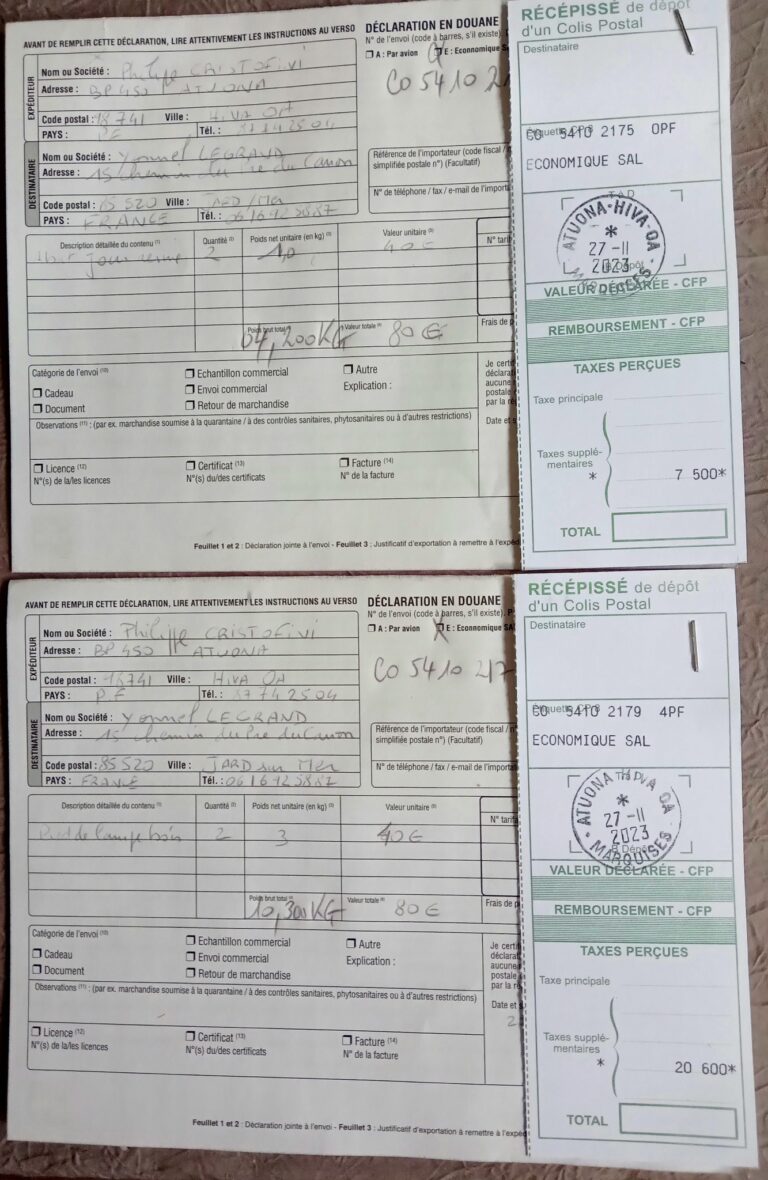 AVANT DE REMPLIR CETTE DÉCLARATION, LIRE ATTENTIVEMENT LES INSTRUCTIONS AU VERSO
DÉCLARATION EN DOUANE
N° de l'envoi (code à barres, s'il existe).
A : Par avion E : Economique
CO 5410 21
EXPÉDITEUR
Nom ou Société : Philippe CRISTOFINI
Adresse : BP 450 ATUONA
Code postal : 98741 Ville : HIVA OA
PAYS : PF Tél. : 87742504
DESTINATAIRE
Nom ou Société : Yonnel LEGRAND
Adresse : 15 chemin du Pré du Canon
Code postal : 85520 Ville : JARD /Mer
PAYS : FRANCE Tél. : 0616423887
Référence de l'importateur (code fiscal /
simplifiée postale n°) (Facultatif)
N° de téléphone / fax / e-mail de l'import
Description détaillée du contenu (1) Quantité (2) Poids net unitaire (en kg) (3) Valeur unitaire (5) N° tari
2 1,0 40€
Poids brut total (4) 04,200KG Valeur totale (6) 80 € Frais de p
Catégorie de l'envoi (10)
Cadeau
Document
Echantillon commercial
Envoi commercial
Retour de marchandise
Autre
Explication :
Je certi
déclarat
aucune
postale
par la r
Date et s
Observations (11) : (par ex. marchandise soumise à la quarantaine / à des contrôles sanitaires, phytosanitaires ou à d'autres restrictions)
Licence (12) Certificat (13) Facture (14)
N°(s) de la/les licences N°(s) du/des certificats N° de la facture
Feuillet 1 et 2 : Déclaration jointe à l'envoi - Feuillet 3 : Justificatif d'exportation à remettre à l'expé
RÉCÉPISSÉ de dépôt
d'un Colis Postal
Destinataire
CO 5410 2175 0PF
ECONOMIQUE SAL
ATUONA-HIVA-OA
27 -11
2023
MARQUISES
VALEUR DÉCLARÉE - CFP
REMBOURSEMENT - CFP
TAXES PERÇUES
Taxe principale
Taxes supplé-
mentaires
* 7 500*
TOTAL
AVANT DE REMPLIR CETTE DÉCLARATION, LIRE ATTENTIVEMENT LES INSTRUCTIONS AU VERSO
DÉCLARATION EN DOUANE
N° de l'envoi (code à barres, s'il existe). P
A : Par avion E : Economique SA
CO 5410 217
EXPÉDITEUR
Nom ou Société : Philippe CRISTOFINI
Adresse : BP 450 ATUONA
Code postal : 98741 Ville : HIVA OA
PAYS : PF Tél. : 87742504
DESTINATAIRE
Nom ou Société : Yonnel LEGRAND
Adresse : 15 chemin du Pré du Canon
Code postal : 85520 Ville : JARD sur Mer
PAYS : FRANCE Tél. : 0616423887
Référence de l'importateur (code fiscal /
simplifiée postale n°) (Facultatif)
N° de téléphone / fax / e-mail de l'import
Description détaillée du contenu (1) Quantité (2) Poids net unitaire (en kg) (3) Valeur unitaire (5) N° tarifa
Pied de lampe bois 2 3 40€
Poids brut total (4) 10,300KG Valeur totale (6) 80€ Frais de p
Catégorie de l'envoi (10)
Cadeau
Document
Echantillon commercial
Envoi commercial
Retour de marchandise
Autre
Explication :
Je certi
déclarat
aucune
postale
par la r
Date et
2
Observations (11) : (par ex. marchandise soumise à la quarantaine / à des contrôles sanitaires, phytosanitaires ou à d'autres restrictions)
Licence (12) Certificat (13) Facture (14)
N°(s) de la/les licences N°(s) du/des certificats N° de la facture
Feuillet 1 et 2 : Déclaration jointe à l'envoi - Feuillet 3 : Justificatif d'exportation à remettre à l'expé
RÉCÉPISSÉ de dépôt
d'un Colis Postal
Destinataire
CO 5410 2179 4PF
ECONOMIQUE SAL
ATUONA HIVA OA
27 -11
2023
MARQUISES
VALEUR DÉCLARÉE - CFP
REMBOURSEMENT - CFP
TAXES PERÇUES
Taxe principale
Taxes supplé-
mentaires
* 20 600*
TOTAL